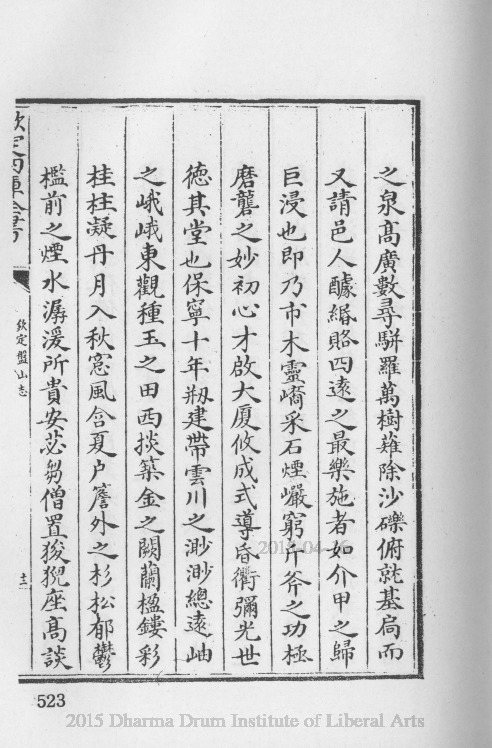 之泉高廣數尋駢羅萬樹薙除沙礫俯就基扃而
又請邑人醵緡賂四遠之最樂施者如介甲之歸
巨浸也即乃市木靈嶠采石煙巖窮斤斧之功極
磨礱之妙初心才啟大厦攸成式導昏衢彌光世
徳其堂也保寧十年剏建帶雲川之渺渺總遠岫
之峨峨東觀種玉之田西掞築金之闕蘭楹鏤彩
桂柱凝丹月入秋窓風含夏户簷外之杉松郁鬱
檻前之煙水潺湲所貴安苾芻僧置狻猊座高談
欽定四庫全書
欽定盤山志
十二
2015-04-16
523
2015 Dharma Drum Institute of Liberal Arts